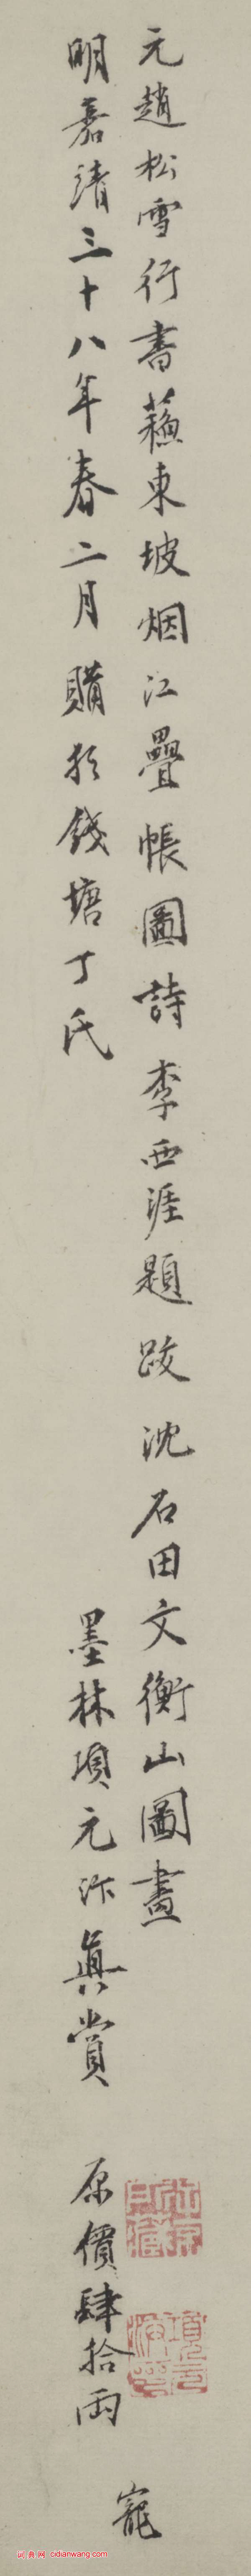 元趙松雪行書蘓東坡烟江疊帳圖詩李西涯題跋沈石田文衡山圖畫
明嘉靖三十八年春二月購於錢塘丁氏 墨林項元汴真賞 原價肆拾兩
寵
词典网 cidianwang.com